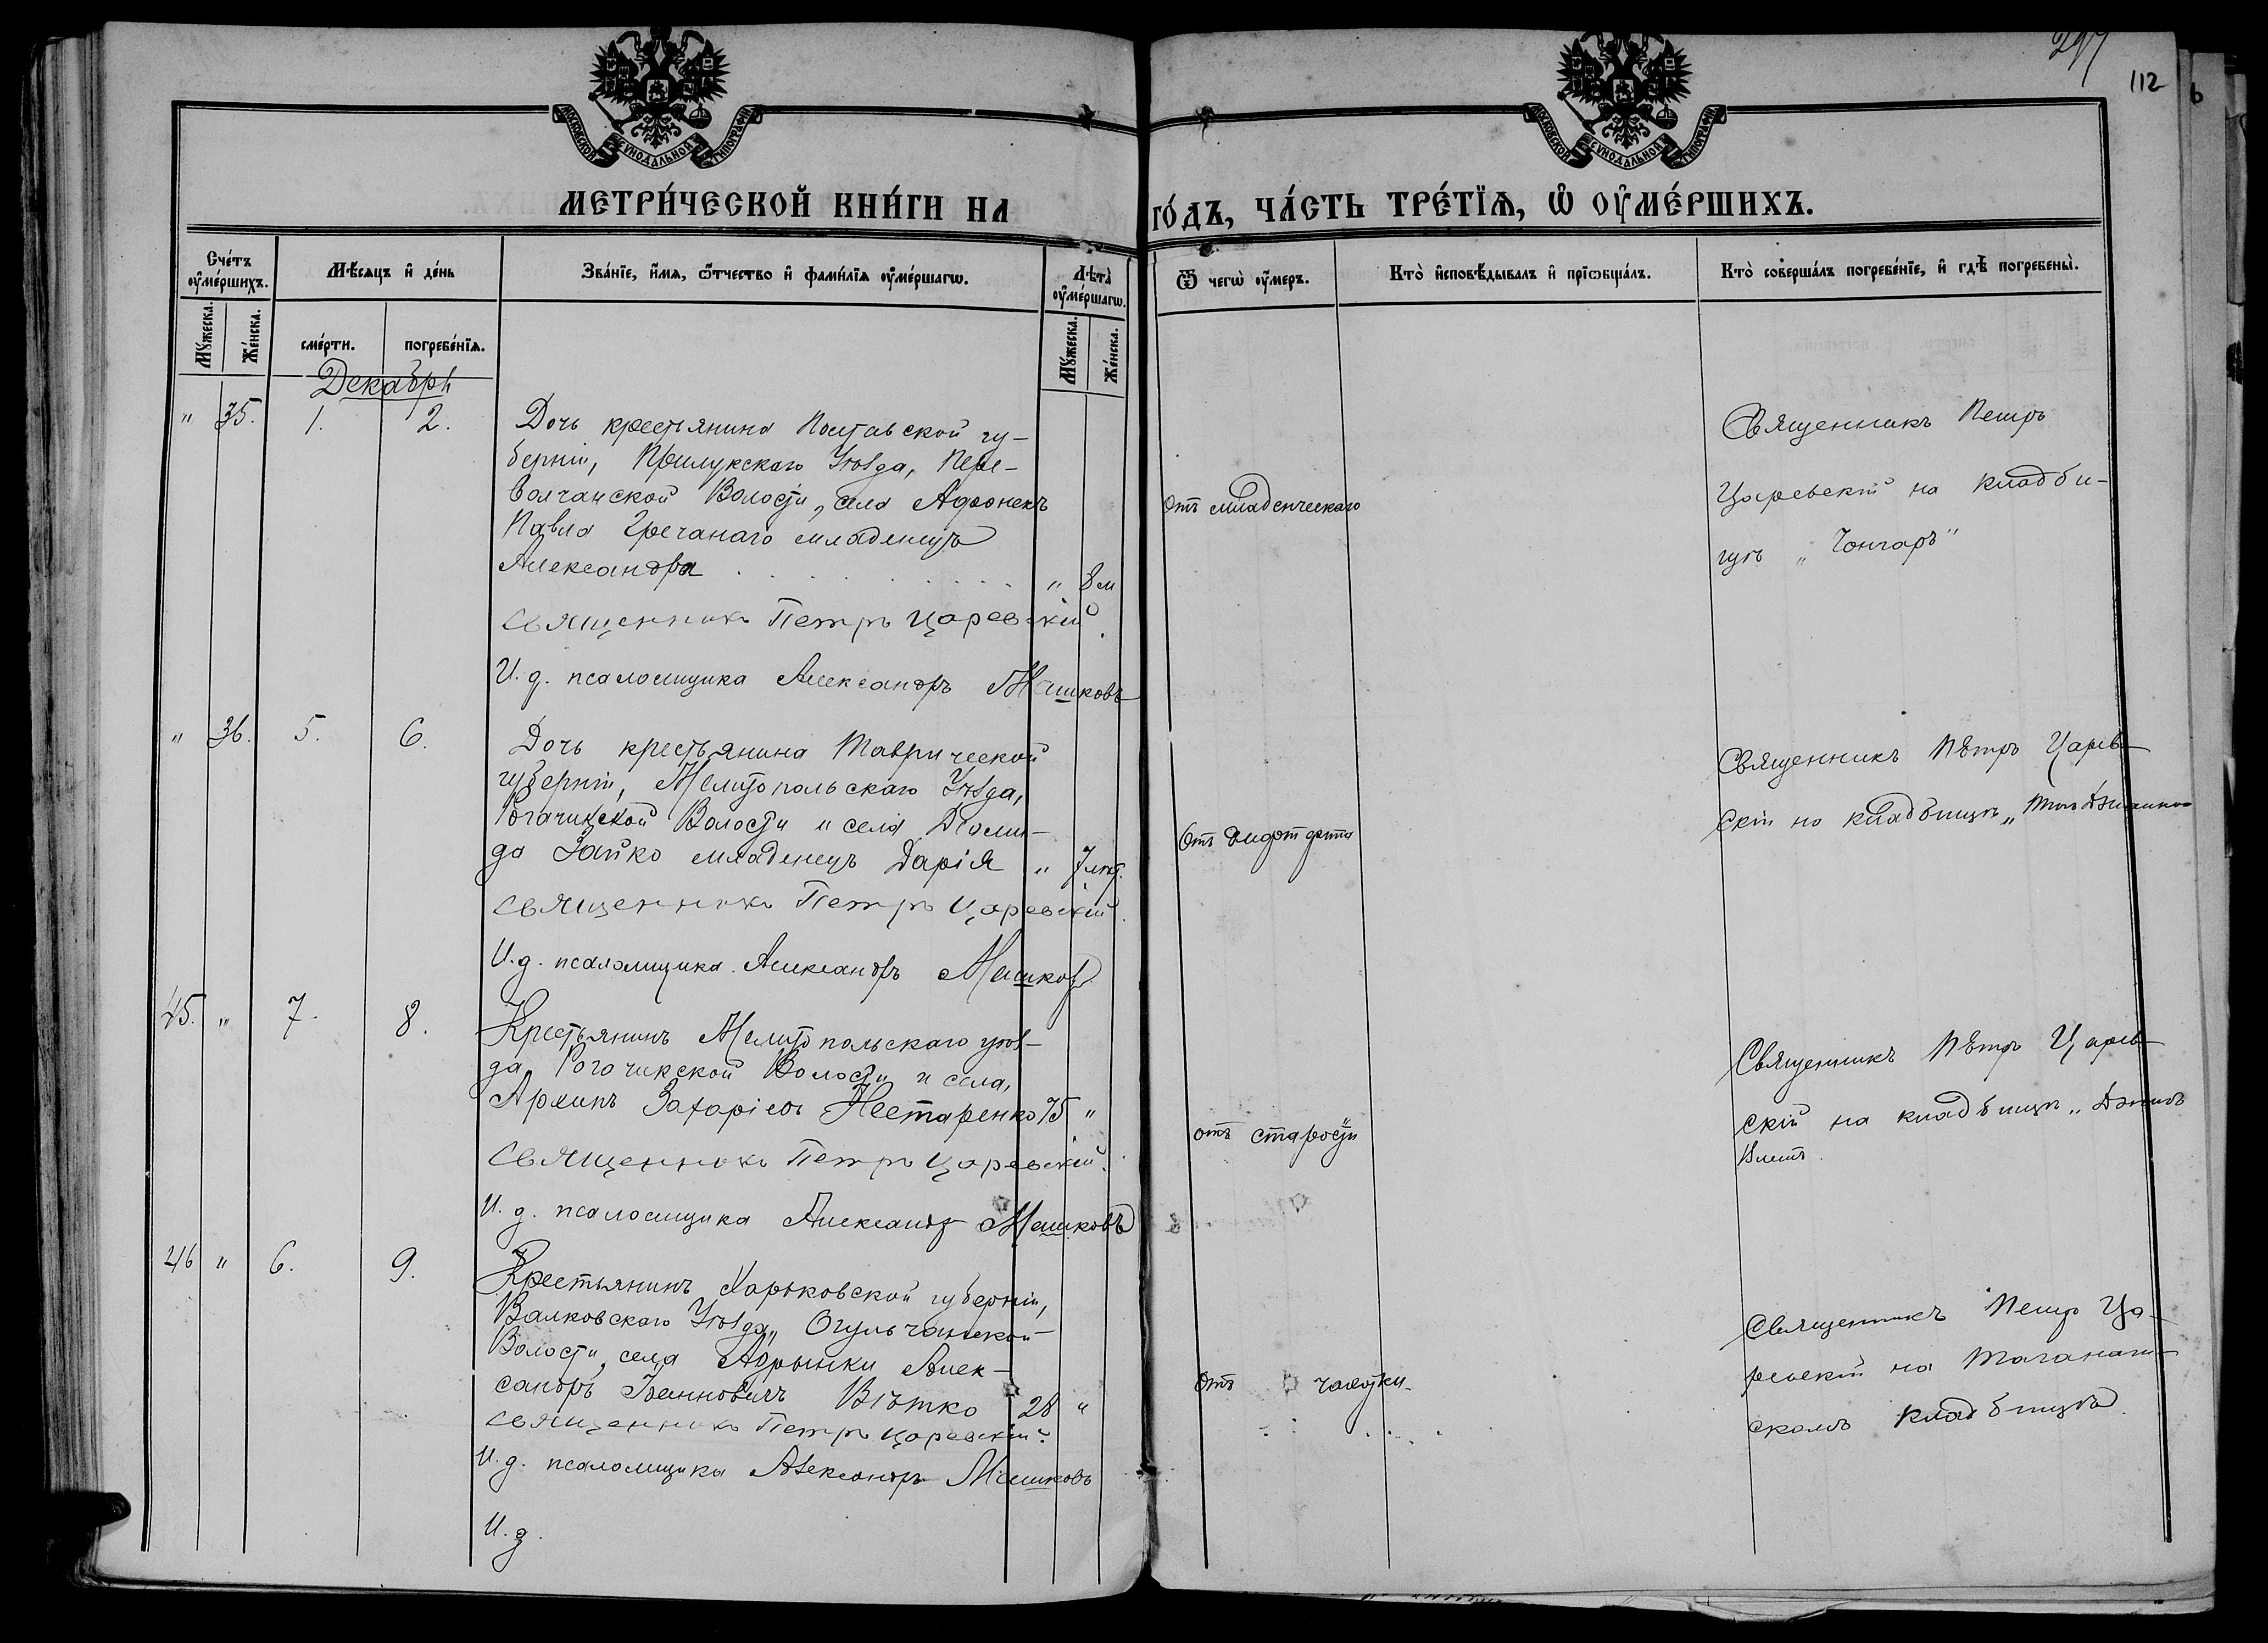 297
112
МОСКОВСКОЙ СУНОДАЛЬНОЙ ТИПОГРАФІИ
МОСКОВСКОЙ СУНОДАЛЬНОЙ ТИПОГРАФІИ
МЕТРИ́ЧЕСКОЙ КНИ́ГИ НА ГО́ДЪ, ЧА́СТЬ ТРЕ́ТЇѦ, Ѡ ОУ҆МЕ́РШИХЪ.
Сче́тъ оу҆ме́ршихъ.
Мꙋ́жеска.
Же́нска.
Мѣ́сѧцъ и҆ де́нь
сме́рти.
погребе́нїѧ.
Зва́нїе, и҆́мѧ, ѻ҆́тчество и҆ фамі́лїѧ оу҆ме́ршагѡ.
Лѣ́та оу҆ме́ршагѡ.
Мꙋ́жеска.
Же́нска.
Ѿ чегѡ̀ оу҆́меръ.
Кто̀ и҆сповѣ́дывалъ и҆ прїѡбща́лъ.
Кто̀ соверша́лъ погребе́нїе, и҆ гдѣ̀ погребены̀.
Декабрь
" 35. 1. 2. Дочь крестьянина Полтавской гу-
берніи, Прилукскаго Уѣзда, Пере-
волчанской Волости, села
Павла Гречанаго младенецъ
Александра " 8 м
Священникъ Петръ Царевскій.
И. д. псаломщика Александръ Машковъ
Отъ младенческаго
Священникъ Петръ
Царевскій на кладби-
щѣ „Чонгаръ"
" 36. 5. 6. Дочь крестьянина Таврической
губерніи, Мелитопольскаго Уѣзда,
Рогачикской Волости и села Діоми-
да Зайко младенецъ Дарія " 7 лѣт.
Священникъ Петръ Царевскій.
И. д. псаломщика Александръ Машков
Отъ
Священникъ Пѣтръ Царев-
скій на кладбищѣ
45. " 7. 8. Крестьянинъ Мелитопольскаго уѣз-
да Рогачикской Волости и села,
Захаріевъ Нестаренко 75 "
Священникъ Петръ Царевскій.
И. д. псаломщика Александръ Машковъ
отъ старости
Священникъ Пѣтръ Царев-
скій на кладбищѣ
46 " 6. 9. Крестьянинъ Харьковской губерніи,
Валковскаго Уѣзда, Огульчанской
Волости, села Алек-
сандръ Іоанновичъ 28 "
Священникъ Петръ Царевскій.
И. д. псаломщика Александръ Машковъ
И. д.
Отъ чахотки.
Священникъ Петръ Ца-
ревскій на Таганаш-
скомъ кладбищѣ